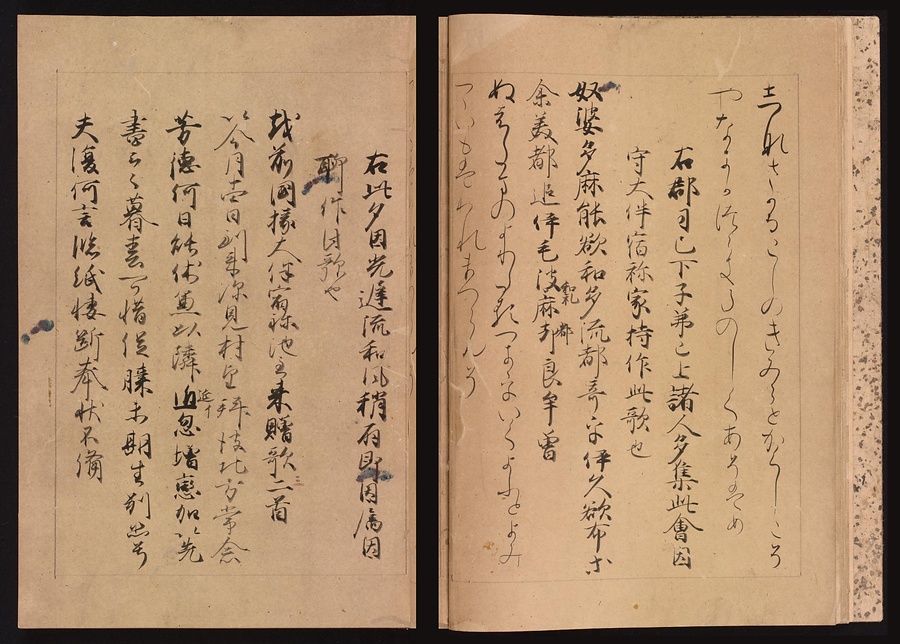 しなさかるこしのきみらとかくしこそ
やなきかつらきたのしくあそはめ
右郡司已下子弟已上諸人多集此會因
守大伴宿祢家持作此歌也
奴婆多麻能欲和多流都奇乎伊久欲布等
余美都追伊毛波和礼麻都良牟曽
ぬはたまのよわたるつきをいくよふとよみ
つついもはわれまつらんそ
右此夕月光遅流和風稍扇即因属目
聊作此歌也
越前國掾大伴宿祢池主来贈歌二首
以今月日到来深見村望拝彼北方常念
芳徳何日能休兼以隣近忽増戀加以先
書云暮春可惜促膝未期生別悲兮
夫復何言臨紙悽断奉状不備